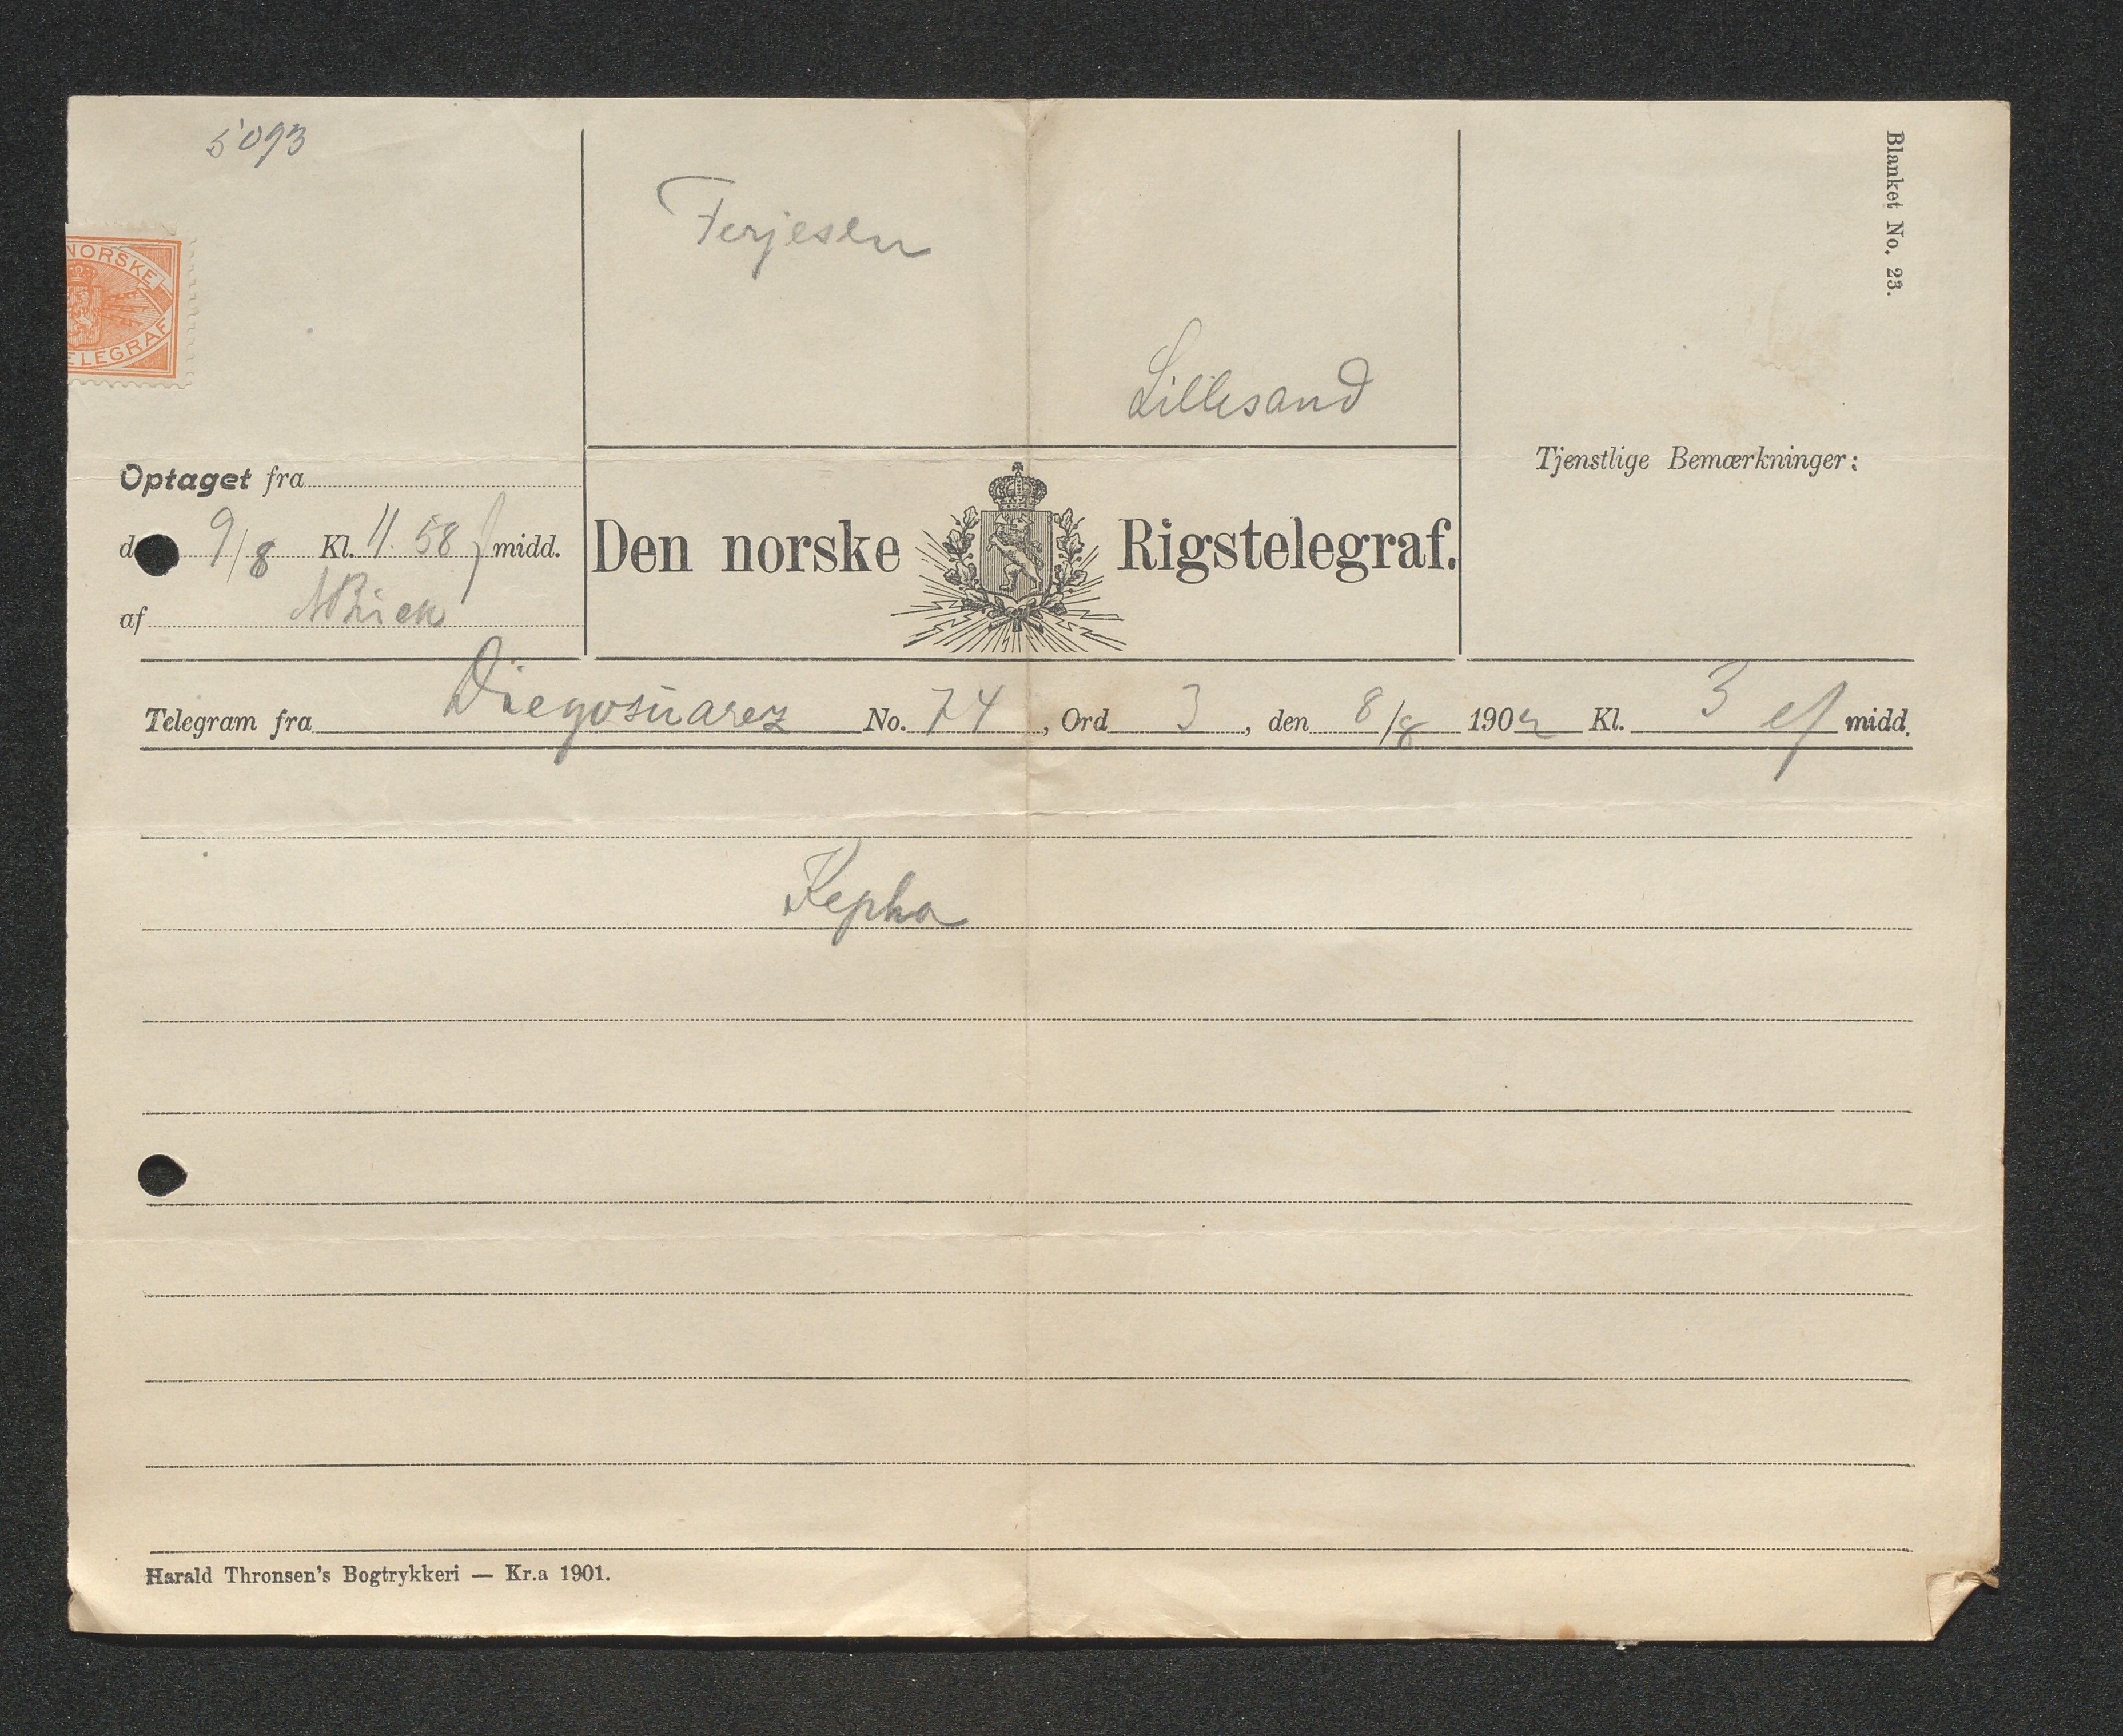 5093
Blanket No. 23.
NORSKE
ELEGRAF
Terjesen
Lillesand
Optaget fra
Tjenstlige Bemærkninger:
9/8 Kl. 11.58 f midd.
Den norske Rigstelegraf.
af
Telegram fra Diegosuarez No. 74, Ord 3, den 8/8 1902 Kl. 3 ef midd.
Kepha
Harald Thronsen's Bogtrykkeri — Kr.a 1901.